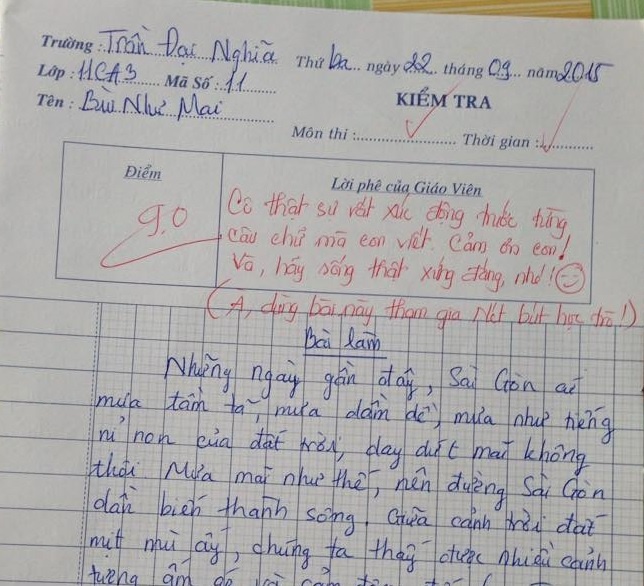 Trường : Trần Đại Nghĩa Thứ ba ngày 22 tháng 09 năm 2015
Lớp : 11CA3 Mã Số : 11
KIỂM TRA
Tên : Bùi Như Mai
Môn thi : Thời gian :
Điểm
Lời phê của Giáo Viên
9.0
Cô thật sự rất xúc động trước từng
câu chữ mà con viết. Cảm ơn con!
Và, hãy sống thật xứng đáng, nhé!
(À, dùng bài này tham gia Nét bút học trò!)
Bài làm
Những ngày gần đây, Sài Gòn cứ
mưa tầm tã, mưa dầm dề, mưa như tiếng
nỉ non của đất trời, day dứt mãi không
thôi. Mưa mãi như thế, nên đường Sài Gòn
dần biến thành sông. Giữa cảnh trời đất
mịt mù ấy, chúng ta thấy được nhiều cảnh
tượng ấm